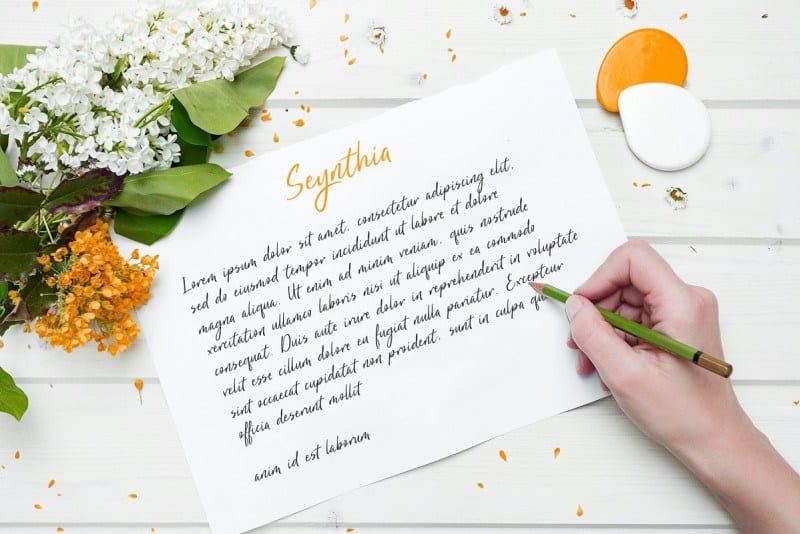 Seynthia
Lorem ipsum dolor sit amet, consectetur adipiscing elit,
sed do eiusmod tempor incididunt ut labore et dolore
magna aliqua. Ut enim ad minim veniam, quis nostrude
xercitation ullamco laboris nisi ut aliquip ex ea commodo
consequat. Duis aute irure dolor in reprehenderit in voluptate
velit esse cillum dolore eu fugiat nulla pariatur. Excepteur
sint occaecat cupidatat non proident, sunt in culpa qu
officia deserunt mollit
anim id est laborum